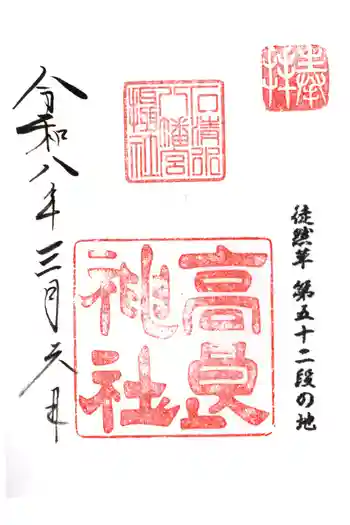 奉拝
徒然草 第五十二段の地
石清水
八幡宮
摂社
高良
神社
令和八年三月六日